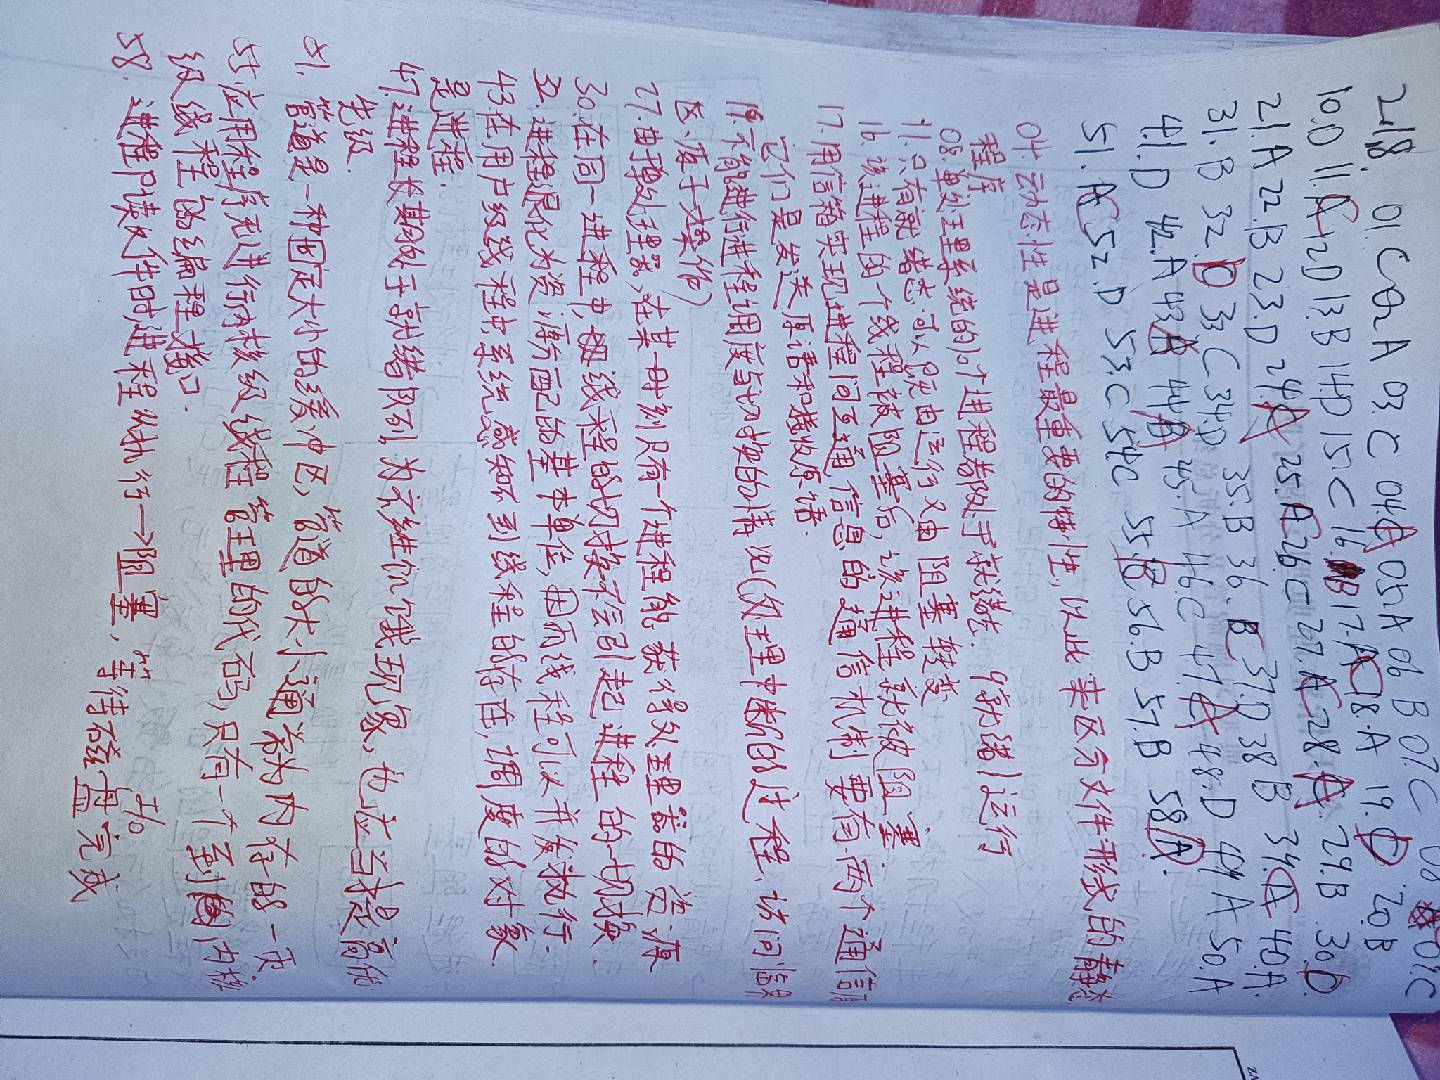 2.1.8. 01.C 02 A 03. C 04. A 05.A 06 B 07.C 08 09.C
10.D 11.C 12D 13.B 14.D 15.C 16.B 17.C 18.A 19.D 20.B
21.A 22.B 23.D 24.A 25.C 26.C 27.C 28 A 29.B 30.D
31.B 32.D 33.C 34.D 35.B 36. C 37.D 38 B 39.C 40.A.
41.D 42.A 43.A 44 A 45.A 46.C 47.A 48.D 49 A 50.A
51.C 52.D 53.C 54C 55.B 56.B 57.B 58.A.
04. 动态性是进程最重要的特性,以此来区分文件形式的静态
程序
08.单处理系统的10个进程都处于就绪态. 9就绪1运行
11.只有就绪态可以既由运行又由阻塞转变
16.该进程的一个线程被阻塞后,该进程就被阻塞.
17.用信箱实现进程间互通信息的通信机制要有两个通信
它们是发送原语和接收原语.
19.不能进行进程调度与切换的情况(处理中断的过程、访问临界
区、原子操作)
27.由于单处理器,在某一时刻只有一个进程能获得处理器的资源
30.在同一进程中,线程的切换不会引起进程的切换
32.进程退化为资源分配的基本单位,因而线程可以并发执行.
43.在用户级线程中,系统感知不到线程的存在,调度的对象
是进程.
47.进程长期处于就绪队列,为不产生饥饿现象,也应当提高优
先级.
51. 管道是一种固定大小的缓冲区,管道的大小通常为内存的一页.
55.应用程序无进行内核级线程管理的代码,只有一个到内核
级线程的编程接口.
58. 进程P读文件时,进程从执行→阻塞,等待磁盘I/O完成